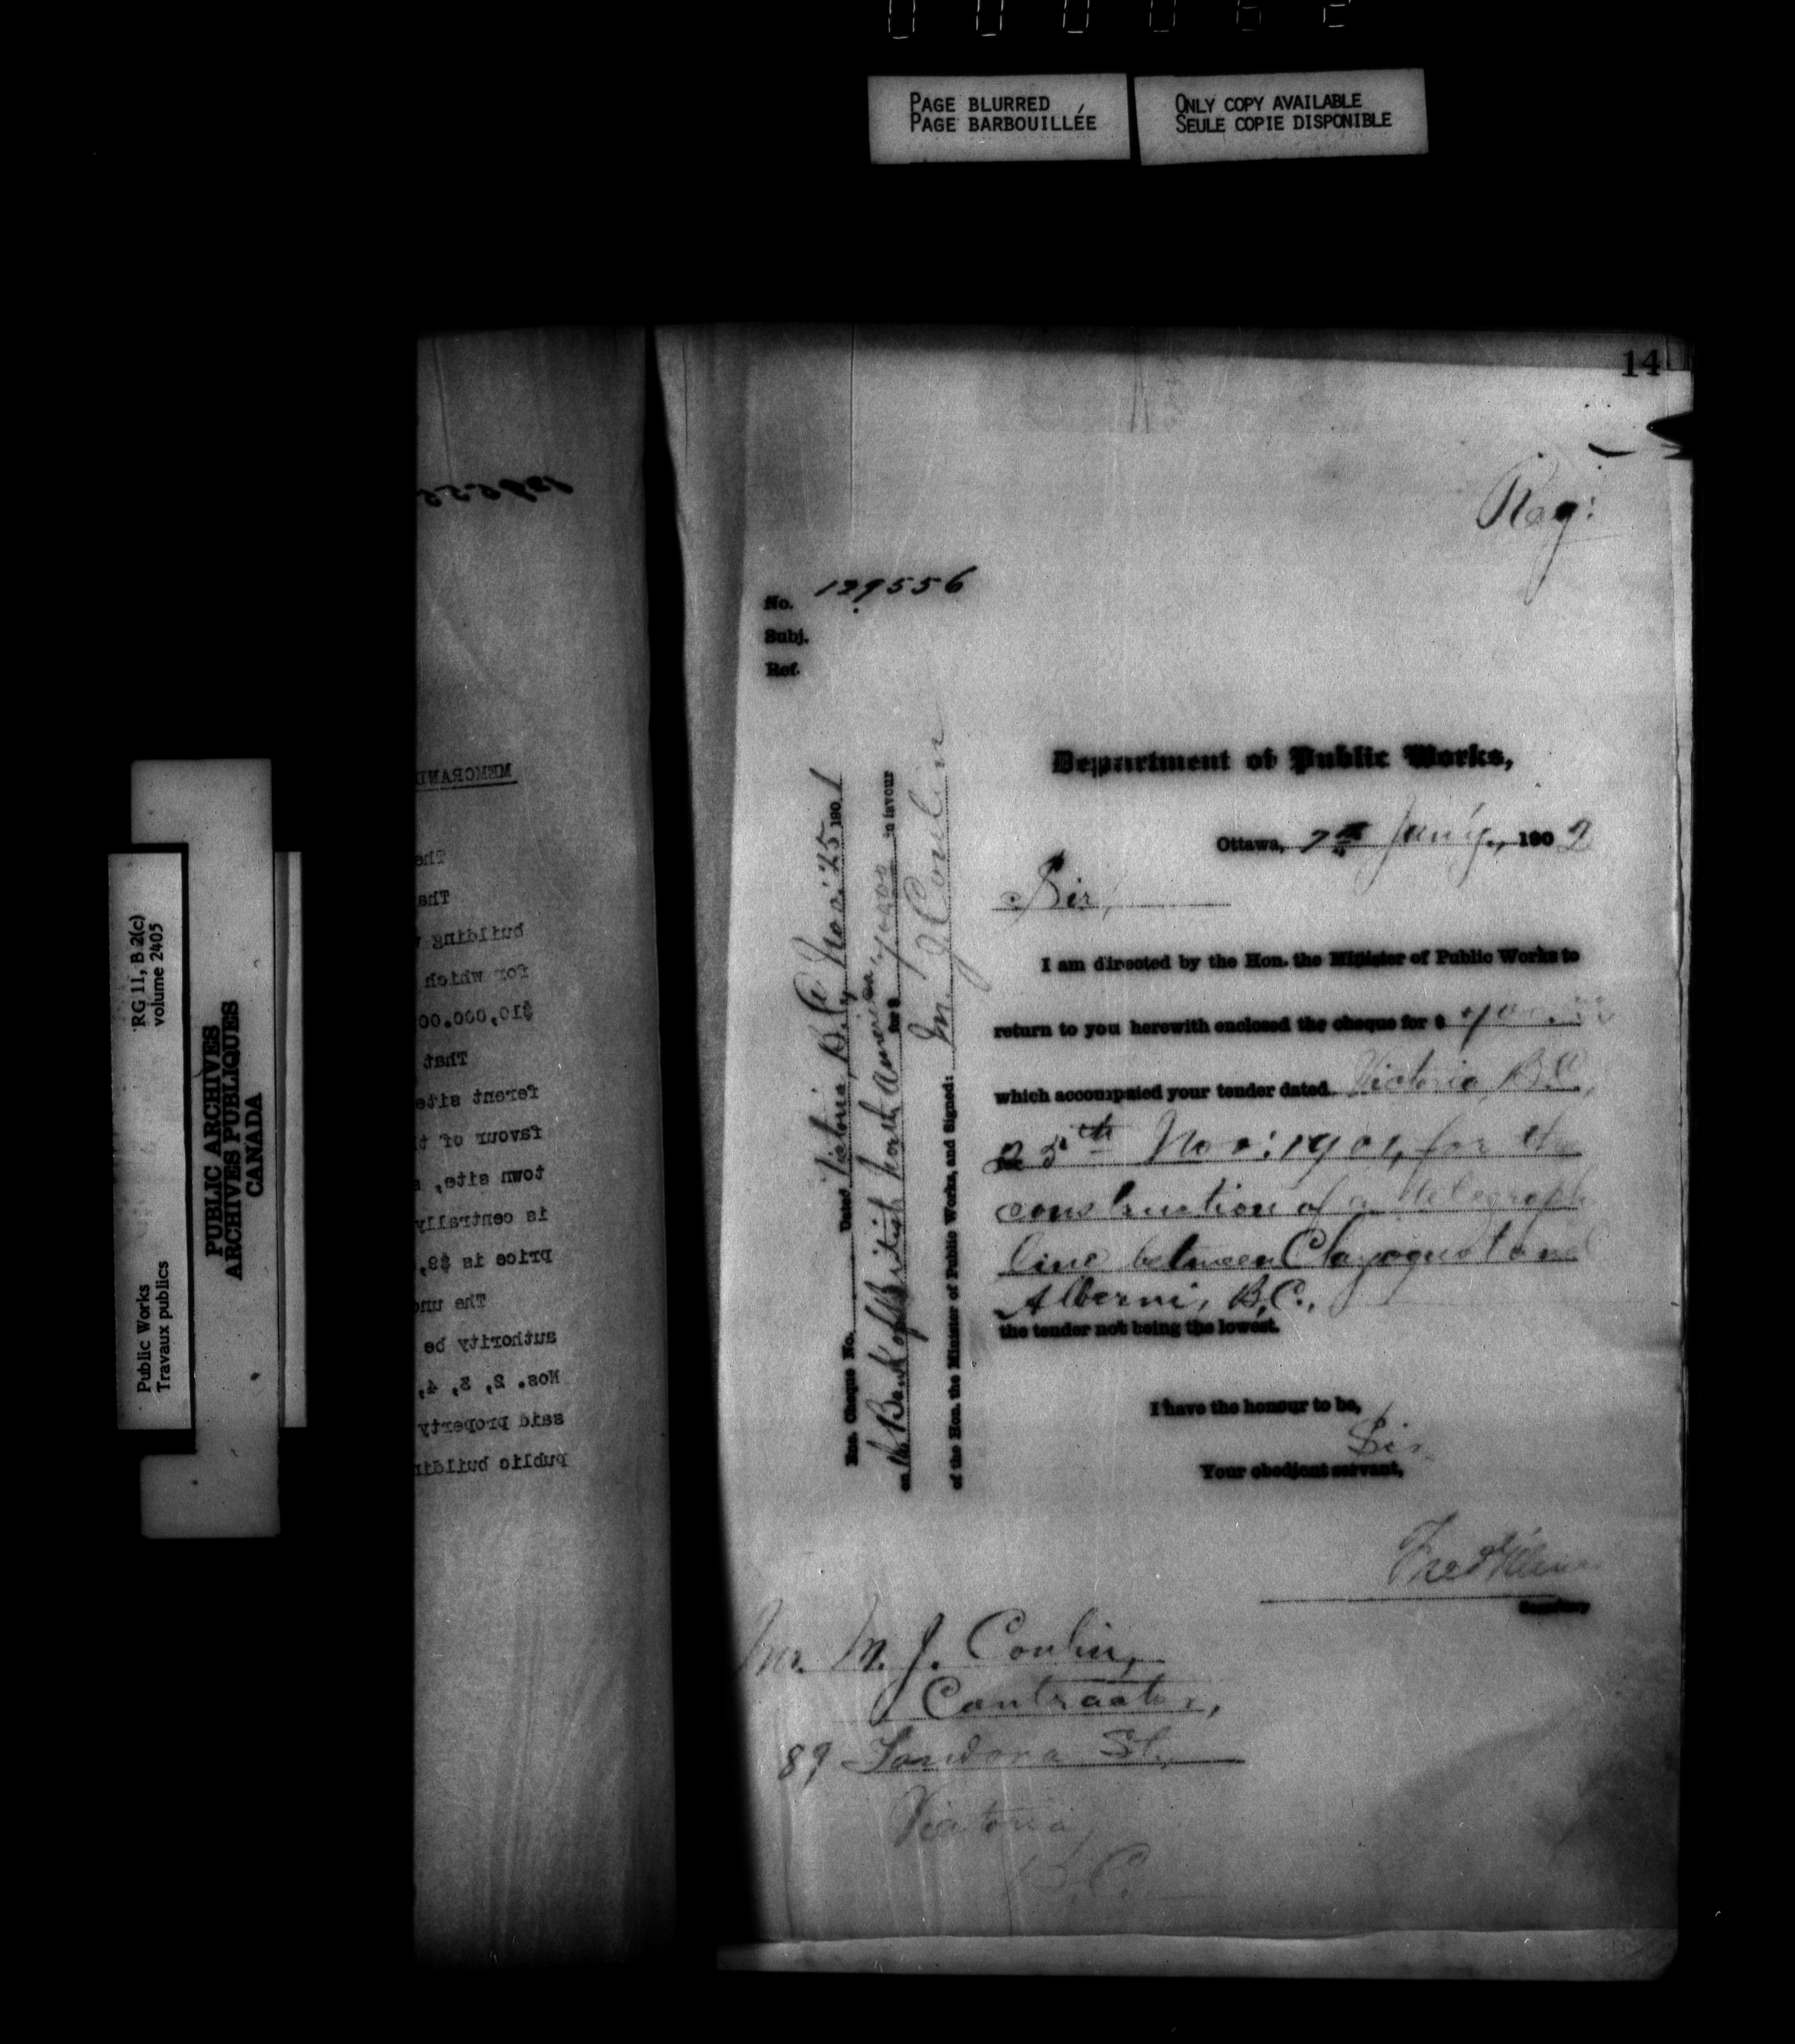 PAGE BLURRED
PAGE BARBOUILLÉE
ONLY COPY AVAILABLE
SEULE COPIE DISPONIBLE
Public Works
Travaux publics
RG 11, B 2(c)
volume 2405
PUBLIC ARCHIVES
ARCHIVES PUBLIQUES
CANADA
MEMORAND
The
Tha
building
for which
$10,000.00
That
ferent site
favour of t
town site,
is centrally
price is $9,
The un
authority be
Nos. 2, 3, 4,
said property
public buildin
14
No. 129556
Subj.
Ref.
Department of Public Works,
Ottawa, 7th Jan'y., 1902
Sir,
I am directed by the Hon. the Minister of Public Works to
return to you herewith enclosed the cheque for $
which accompanied your tender dated Victoria B.C.,
25th Nov: 1901, for the
construction of a telegraph
line between Clayoquot and
Alberni, B.C.,
the tender not being the lowest.
I have the honour to be,
Sir
Your obedient servant,
Secretary
Enc. Cheque No. Dated Victoria, B.C. Nov: 25 1901
on the Bank of British North America, for $ in favour
of the Hon. the Minister of Public Works, and Signed: M. J. Conlin
Mr. M. J. Conlin,
Contractor,
89 Pandora St.,
Victoria,
B.C.